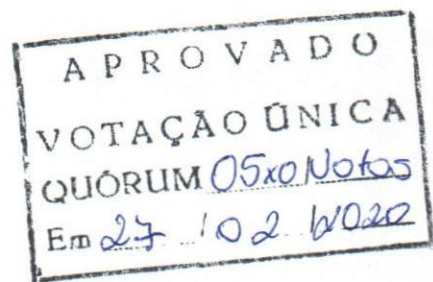 APROVADO
VOTAÇÃO ÚNICA
QUÓRUM 05x0 Votos
Em 27 / 02 / 2020